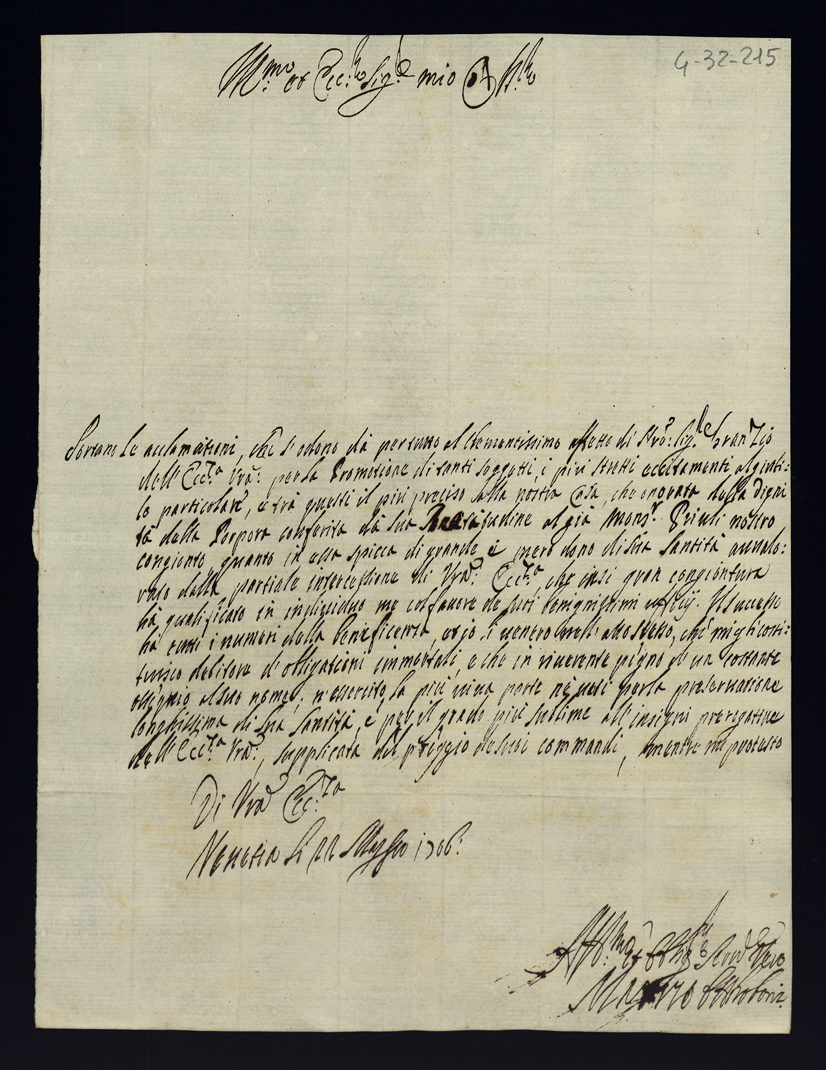 4-32-215
Ill.mo et Ecc.mo Sig.r mio Oss.mo
Portano le acclamationi, che s'odono da per tutto al Clementissimo affetto di N'ro Sig.re gran Zio
dell'Ecc.za Vra: per la Promotione di tanti soggetti, i più stretti eccitamenti al giubi:
lo particolar', e trà questi il più preciso alla nostra Casa, che onorata dalla digni
tà della Porpora conferita dà Sua Beatitudine al già Mons.r Priuli nostro
congionto, quanto in essa spicca di grande è mero dono di Sua Santità auualo:
rato dalla partiale intercessione di Vra: Ecc.za, che in sì gran congiontura
hà qualificato in indiuiduo me col fauore de suoi benignissimi ufficij. Il successo
hà tutti i numeri della beneficenza, et io li uenero nell' atto stesso, che mi gli costi:
tuisco debitore d'obligationi immortali, e che in riuerente pegno d'un costante
ossequio al suo nome, n'essercito la più uiua parte ne uoti per la preseruatione
longhissima di Sua Santità, e per il grado più sublime all'insigni prerogatiue
dell'Ecc.za Vra:, supplicata del preggio de suoi commandi, mentre mi protesto
Di Vra Ecc.za
Venetia li 22 Maggio 1706.
Aff.mo et Obblig.mo Seru.re Vero
Ottoboni